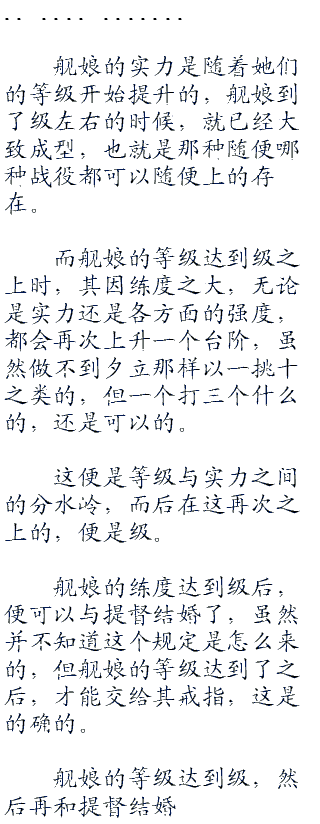 .. .... .......
舰娘的实力是随着她们
的等级开始提升的，舰娘到
了级左右的时候，就已经大
致成型，也就是那种随便哪
种战役都可以随便上的存
在。
而舰娘的等级达到级之
上时，其因练度之大，无论
是实力还是各方面的强度，
都会再次上升一个台阶，虽
然做不到夕立那样以一挑十
之类的，但一个打三个什么
的，还是可以的。
这便是等级与实力之间
的分水岭，而后在这再次之
上的，便是级。
舰娘的练度达到级后，
便可以与提督结婚了，虽然
并不知道这个规定是怎么来
的，但舰娘的等级达到了之
后，才能交给其戒指，这是
的确的。
舰娘的等级达到级，然
后再和提督结婚